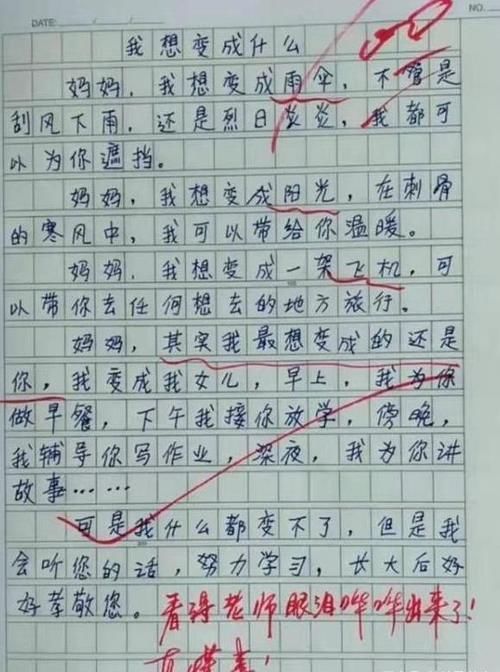 DATE:
NO.
我想变成什么
妈妈,我想变成雨伞,不管是
刮风下雨,还是烈日炎炎,我都可
以为你遮挡。
妈妈,我想变成阳光,在刺骨
的寒风中,我可以带给你温暖。
妈妈,我想变成一架飞机,可
以带你去任何想去的地方旅行。
妈妈,其实我最想变成的还是
你,我变成我女儿,早上,我为你
做早餐,下午我接你放学,傍晚,
我辅导你写作业,深夜,我为你讲
故事……
可是我什么都变不了,但是我
会听您的话,努力学习,长大后好
好孝敬您。看得老师眼泪哗哗出来了!